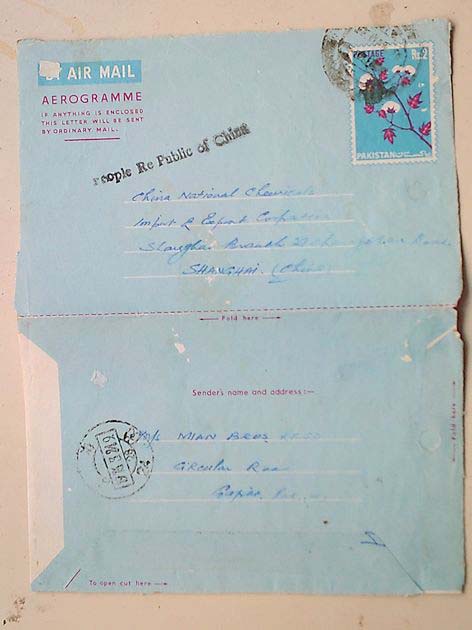 AIR MAIL
AEROGRAMME
IF ANYTHING IS ENCLOSED
THIS LETTER WILL BE SENT
BY ORDINARY MAIL.
POSTAGE Rs.2
PAKISTAN پاکستان
People Re Public of China
China National Chemicals
Import & Export Corporation
Shanghai Branch Road
SHANGHAI. (China)
← Fold here →
Sender's name and address:—
M/s MIAN BROS
Circular Roa
← Fold here →
To open cut here →